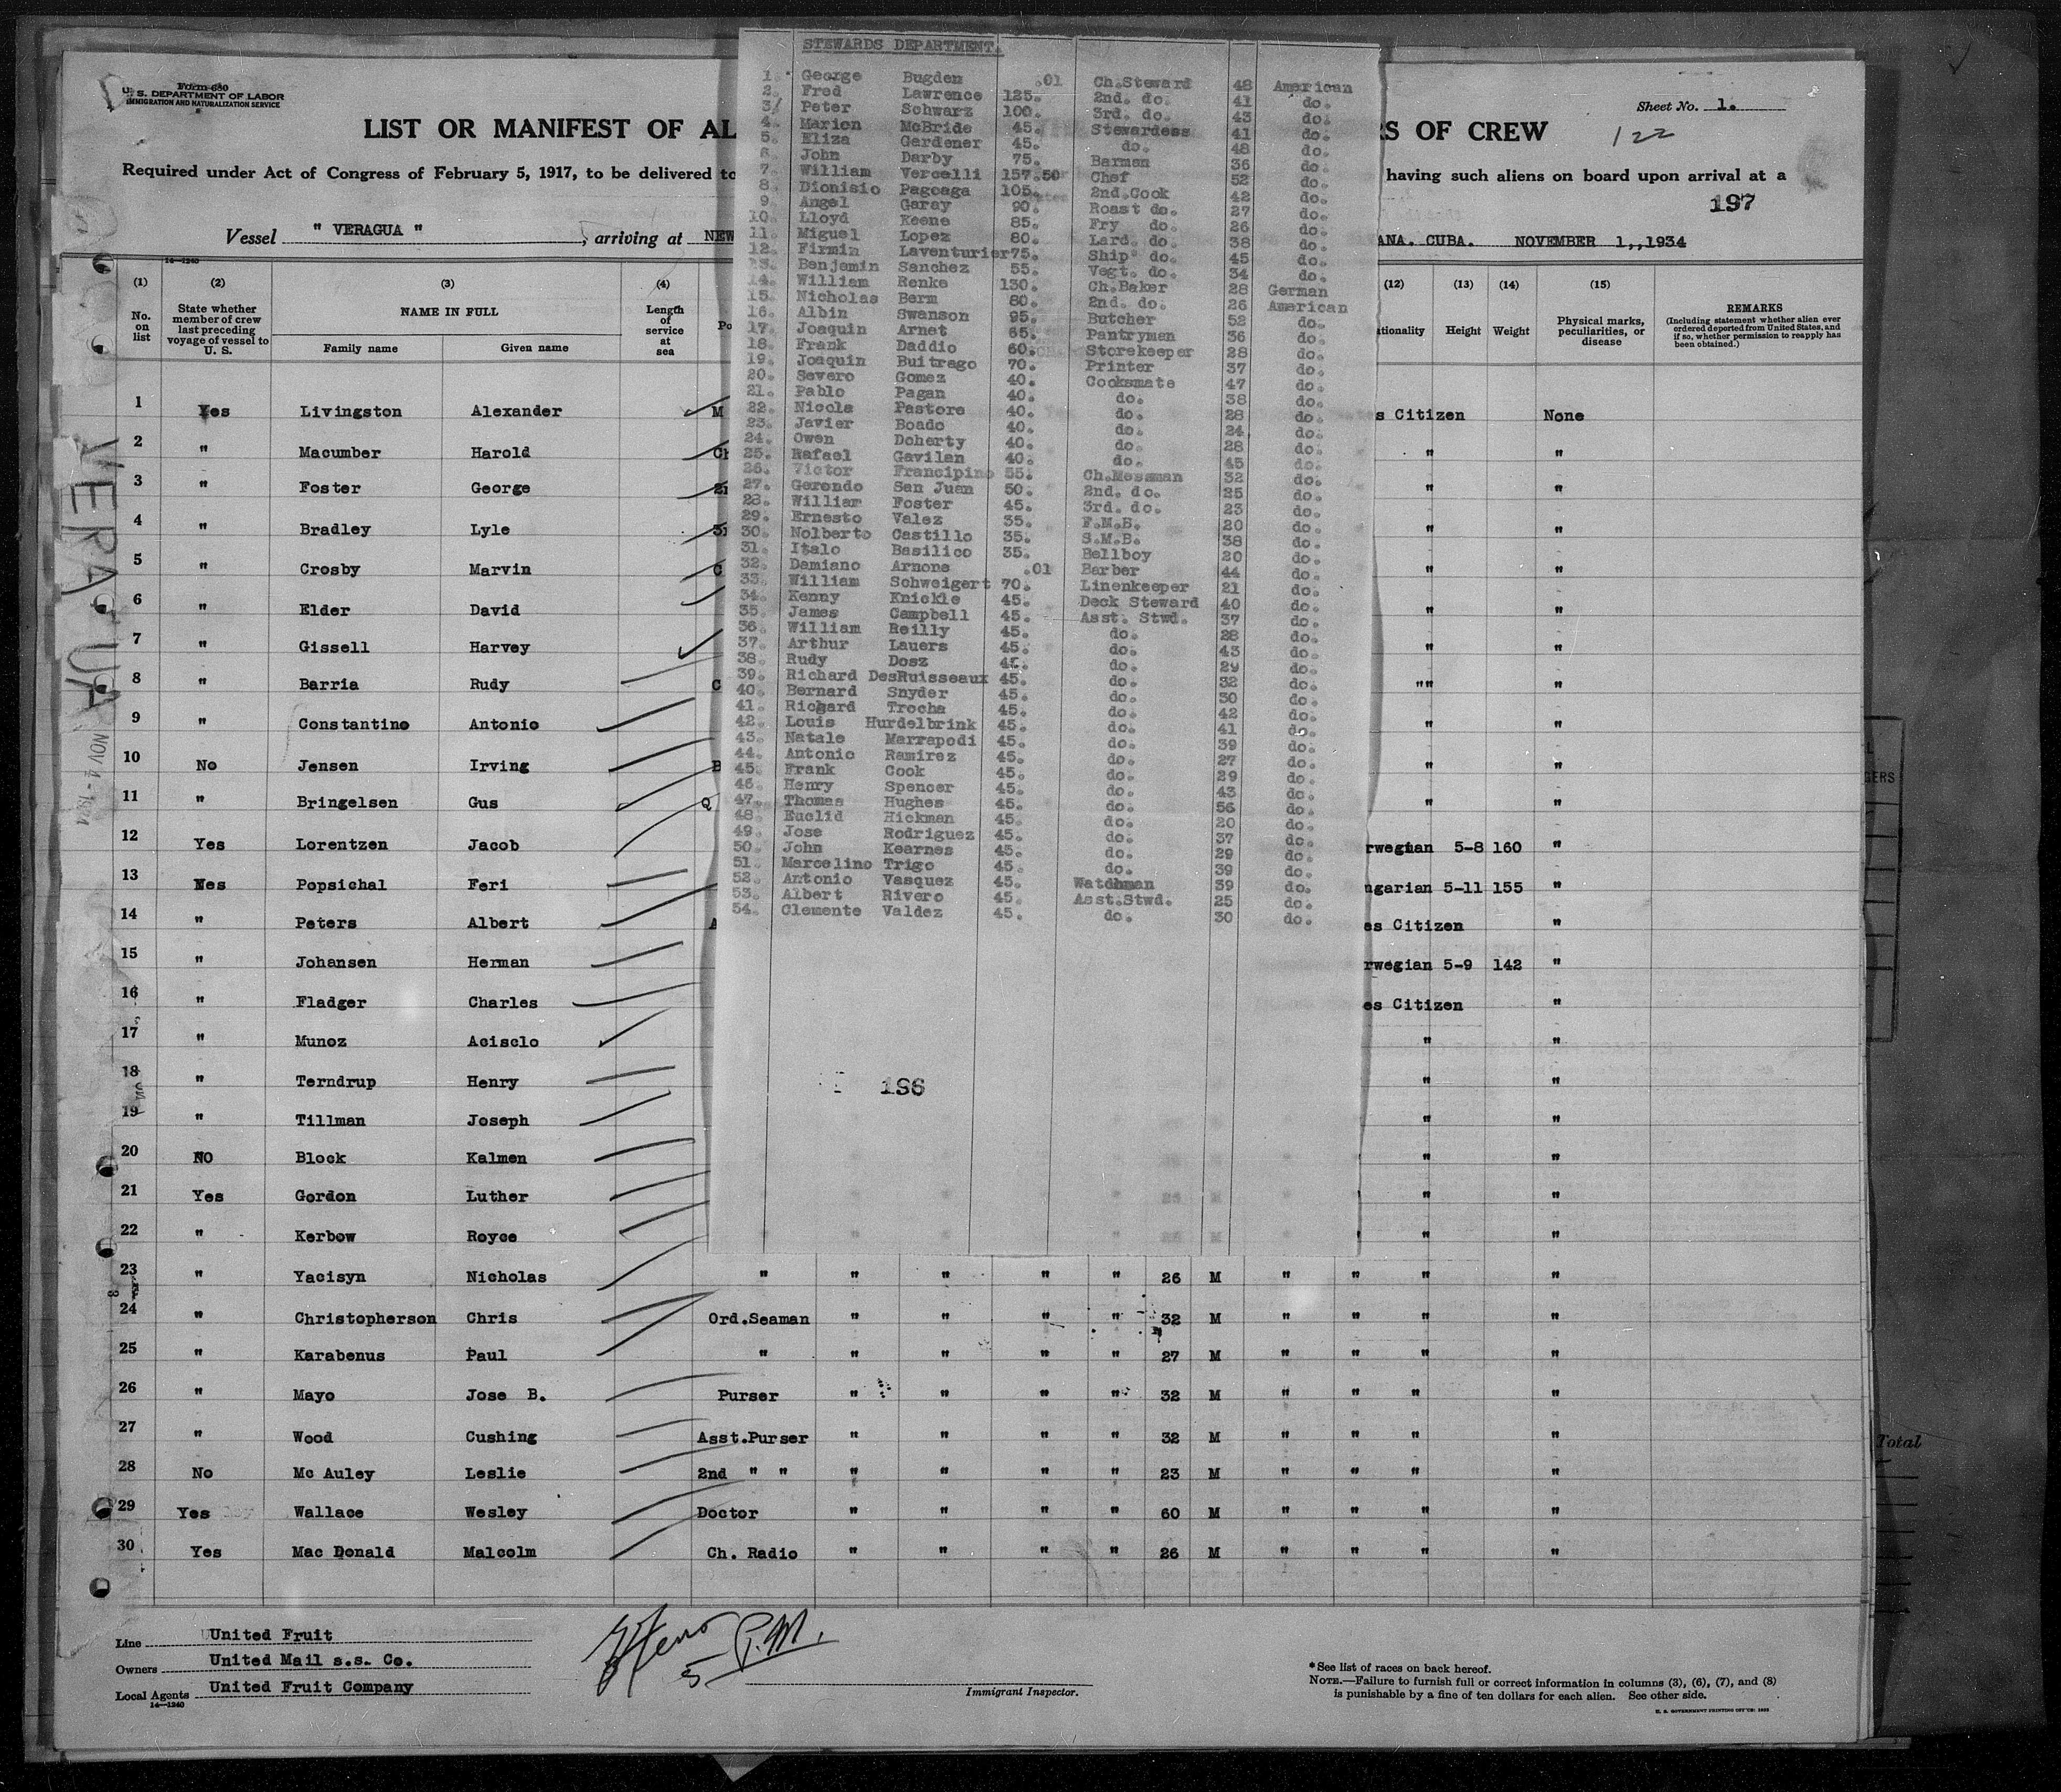 STEWARDS DEPARTMENT.
1. George Bugden .01 Ch.Steward 48 American
2. Fred Lawrence 125. 2nd. do. 41 do.
3/ Peter Schwarz 100. 3rd. do. 43 do.
4. Marion McBride 45. Stewardess 41 do.
5. Eliza Gardener 45. do. 48 do.
6. John Darby 75. Barman 36 do.
7. William Vercelli 157.50 Chef 52 do.
8. Dionisio Pagoaga 105. 2nd.Cook 42 do.
9. Angel Garay 90. Roast do. 27 do.
10. Lloyd Keene 85. Fry do. 26 do.
11. Miguel Lopez 80. Lard. do. 38 do.
12. Firmin Laventurier 75. Ship do. 45 do.
13. Benjamin Sanchez 55. Vegt. do. 34 do.
14. William Renke 130. Ch.Baker 28 German
15. Nicholas Berm 80. 2nd. do. 26 American
16. Albin Swanson 95. Butcher 52 do.
17. Joaquin Arnet 65. Pantryman 36 do.
18. Frank Daddio 60. Storekeeper 28 do.
19. Joaquin Buitrago 70. Printer 37 do.
20. Severo Gomez 40. Cooksmate 47 do.
21. Pablo Pagan 40. do. 38 do.
22. Nicola Pastore 40. do. 28 do.
23. Javier Boado 40. do. 24 do.
24. Owen Doherty 40. do. 28 do.
25. Rafael Gavilan 40. do. 45 do.
26. Victor Francipino 55. Ch.Messman 32 do.
27. Gerondo San Juan 50. 2nd. do. 25 do.
28. William Foster 45. 3rd. do. 23 do.
29. Ernesto Valez 35. F.M.B. 20 do.
30. Nolberto Castillo 35. S.M.B. 38 do.
31. Italo Basilico 35. Bellboy 20 do.
32. Damiano Arnone .01 Barber 44 do.
33. William Schweigert 70. Linenkeeper 21 do.
34. Kenny Knickle 45. Deck Steward 40 do.
35. James Campbell 45. Asst. Stwd. 37 do.
36. William Reilly 45. do. 28 do.
37. Arthur Lauers 45. do. 43 do.
38. Rudy Dosz 45. do. 29 do.
39. Richard DesRuisseaux 45. do. 32 do.
40. Bernard Snyder 45. do. 30 do.
41. Richard Trocha 45. do. 42 do.
42. Louis Hurdelbrink 45. do. 41 do.
43. Natale Marrapodi 45. do. 39 do.
44. Antonio Ramirez 45. do. 27 do.
45. Frank Cook 45. do. 29 do.
46. Henry Spencer 45. do. 43 do.
47. Thomas Hughes 45. do. 56 do.
48. Euclid Hickman 45. do. 20 do.
49. Jose Rodriguez 45. do. 37 do.
50. John Kearnes 45. do. 29 do.
51. Marcelino Trigo 45. do. 39 do.
52. Antonio Vasquez 45. Watchman 39 do.
53. Albert Rivero 45. Asst.Stwd. 25 do.
54. Clemente Valdez 45. do. 30 do.
196
Form 680
U. S. DEPARTMENT OF LABOR
IMMIGRATION AND NATURALIZATION SERVICE
Sheet No. 1.
LIST OR MANIFEST OF AL RS OF CREW
122
Required under Act of Congress of February 5, 1917, to be delivered to having such aliens on board upon arrival at a
197
Vessel " VERAGUA ", arriving at NEW ANA. CUBA. NOVEMBER 1,,1934
14—1240
(1) (2) (3) (4) (12) (13) (14) (15)
No. on list State whether member of crew last preceding voyage of vessel to U. S. NAME IN FULL Family name Given name Length of service at sea Po ationality Height Weight Physical marks, peculiarities, or disease REMARKS (Including statement whether alien ever ordered deported from United States, and if so, whether permission to reapply has been obtained.)
1 Yes Livingston Alexander M s Citizen None
2 " Macumber Harold Ch " "
3 " Foster George 2n " "
4 " Bradley Lyle 3r " "
5 " Crosby Marvin C " "
6 " Elder David " "
7 " Gissell Harvey " "
8 " Barria Rudy C "" "
9 " Constantino Antonio " "
10 No Jensen Irving B " "
11 " Bringelsen Gus Q " "
12 Yes Lorentzen Jacob rwegian 5-8 160 "
13 Yes Popsichal Feri ngarian 5-11 155 "
14 " Peters Albert A es Citizen "
15 " Johansen Herman rwegian 5-9 142 "
16 " Fladger Charles es Citizen "
17 " Munoz Acisclo " "
18 " Terndrup Henry " "
19 " Tillman Joseph " "
20 NO Block Kalmen " "
21 Yes Gordon Luther " "
22 " Kerbow Royce " "
23 " Yacisyn Nicholas " " " " " 26 M " " " "
24 " Christopherson Chris Ord.Seaman " " " " 32 M " " " "
25 " Karabenus Paul " " " " " 27 M " " " "
26 " Mayo Jose B. Purser " " " " 32 M " " " "
27 " Wood Cushing Asst.Purser " " " " 32 M " " " "
28 No Mc Auley Leslie 2nd " " " " " " 23 M " " " "
29 Yes Wallace Wesley Doctor " " " " 60 M " " " "
30 Yes Mac Donald Malcolm Ch. Radio " " " " 26 M " " " "
VERAGUA
NOV 4 - 1934
GERS
Total
Line United Fruit
Owners United Mail s.s. Co.
Local Agents United Fruit Company
14—1240
5 P.M.
Immigrant Inspector.
* See list of races on back hereof.
NOTE.—Failure to furnish full or correct information in columns (3), (6), (7), and (8)
is punishable by a fine of ten dollars for each alien. See other side.
U. S. GOVERNMENT PRINTING OFFICE: 1933